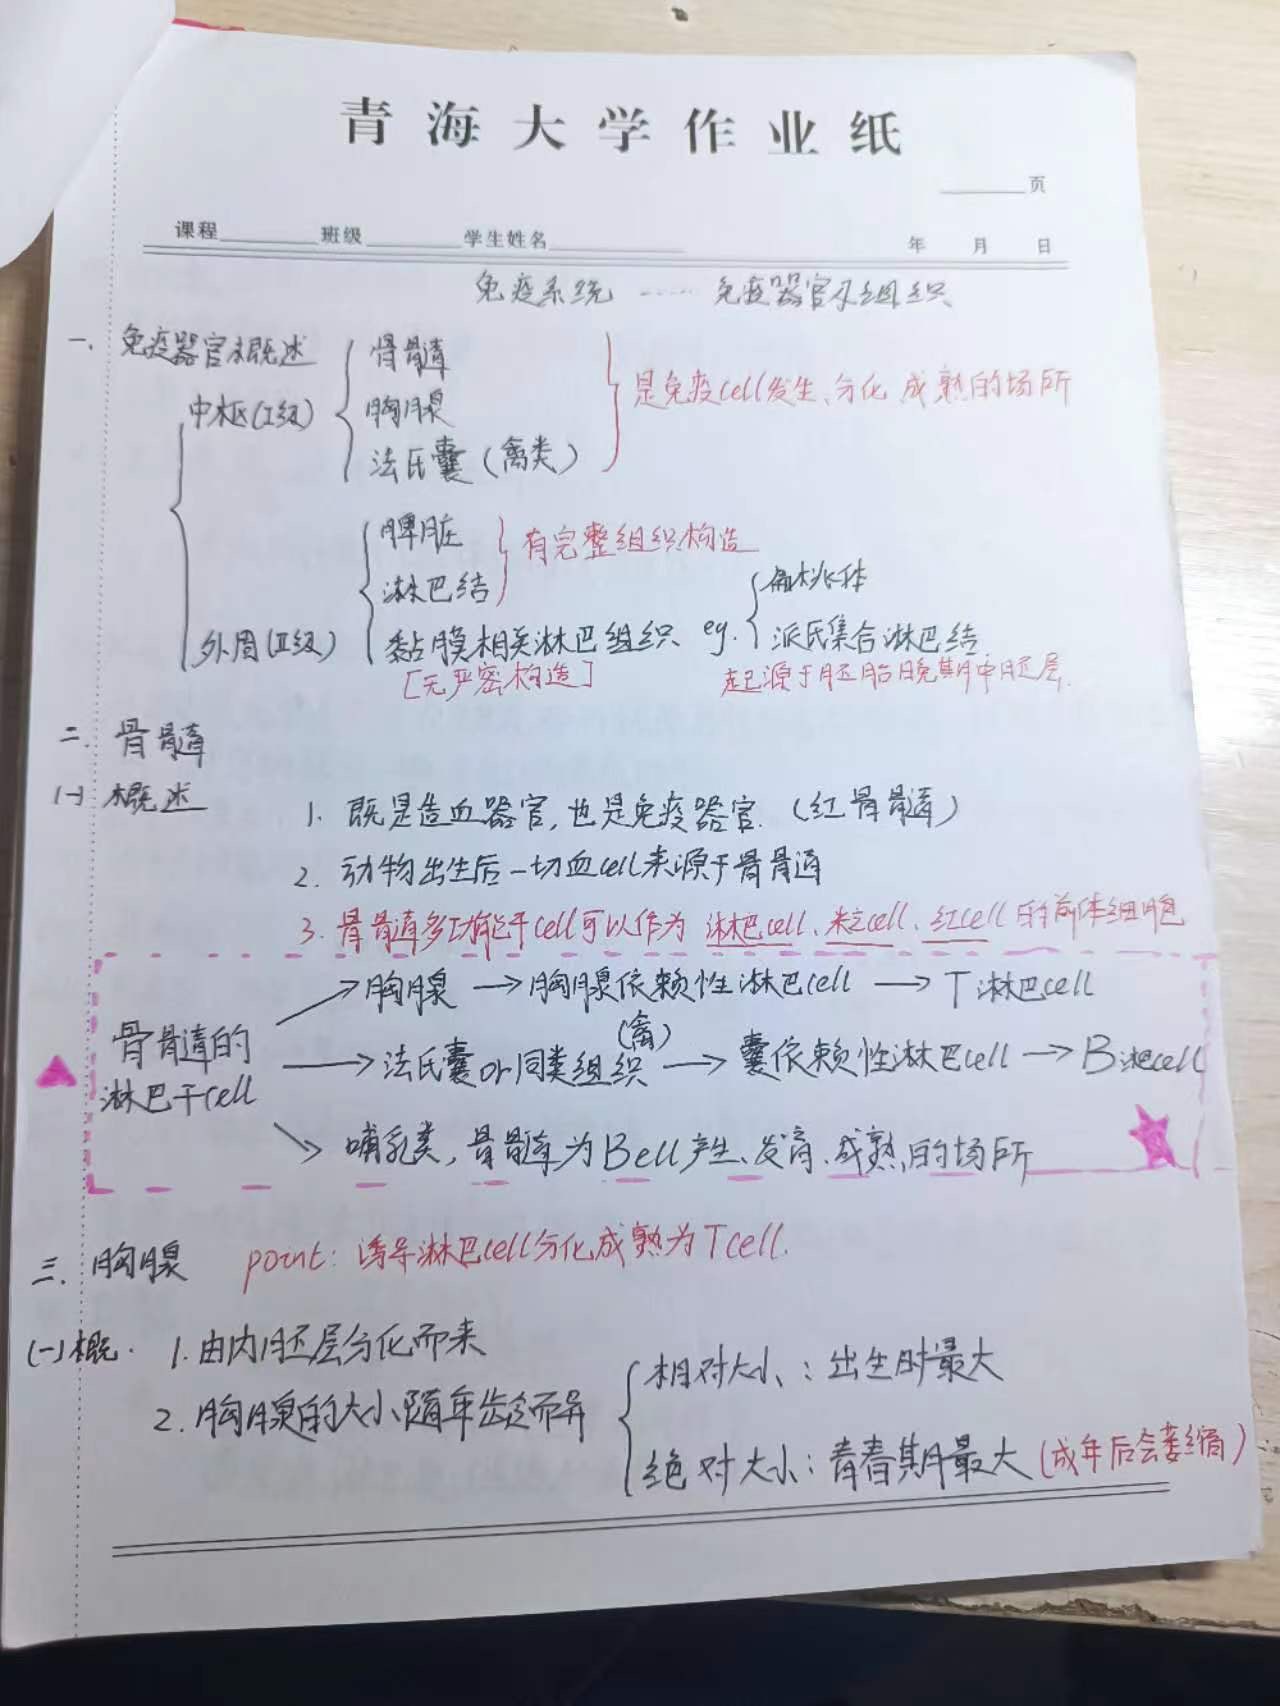 青海大学作业纸
页
课程 班级 学生姓名 年 月 日
免疫系统 ······ 免疫器官及组织
一. 免疫器官概述
中枢(I级)
骨髓
胸腺
法氏囊(禽类)
是免疫cell发生、分化 成熟的场所
外周(II级)
脾脏
淋巴结
有完整组织构造
黏膜相关淋巴组织 eg.
[无严密构造]
扁桃体
派氏集合淋巴结
起源于胚胎晚期中胚层.
二. 骨髓
(一) 概述
1. 既是造血器官,也是免疫器官.(红骨髓)
2. 动物出生后一切血cell来源于骨髓
3. 骨髓多功能干cell可以作为 淋巴cell、粒cell、红cell的前体细胞
骨髓的淋巴干cell
→胸腺→胸腺依赖性淋巴cell→T淋巴cell
→法氏囊or同类组织(禽)→囊依赖性淋巴cell→B淋巴cell
→哺乳类,骨髓为Bell产生、发育、成熟的场所
三. 胸腺 point: 诱导淋巴cell分化成熟为Tcell.
(一)概. 1. 由内胚层分化而来
2. 胸腺的大小随年龄而异
相对大小: 出生时最大
绝对大小: 青春期最大(成年后会萎缩)